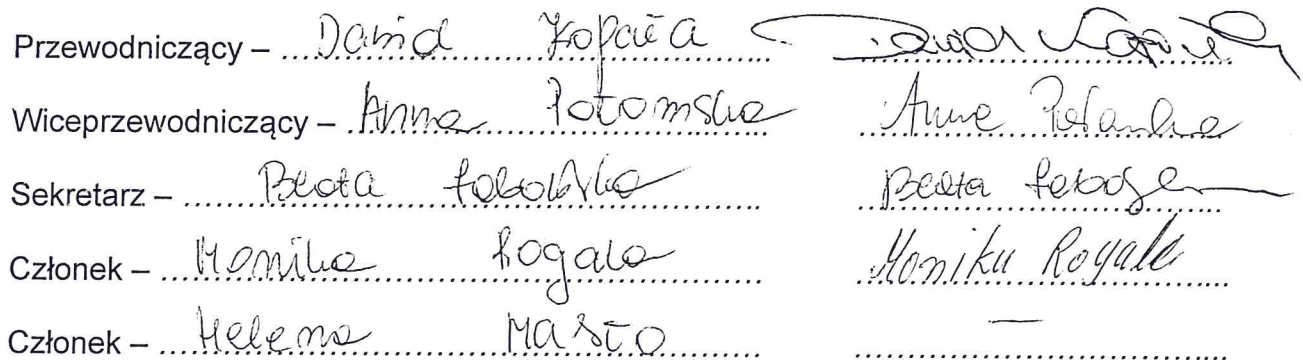 Przewodniczący – Dawid Kopała Dawid
Wiceprzewodniczący – Anna Potomska Anna
Sekretarz – Beata Beata
Członek – Monika Rogala Monika Rogala
Członek – Helena MASŁO —